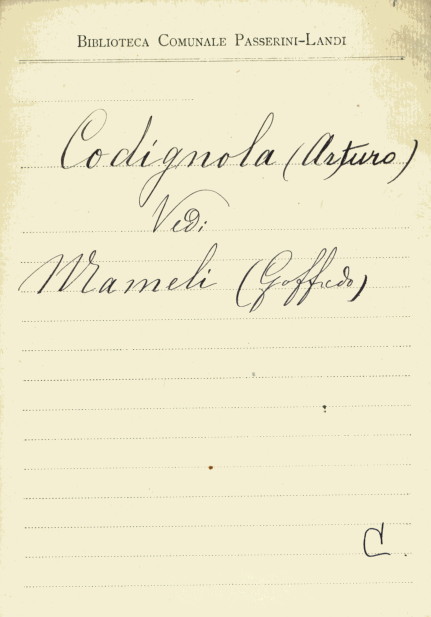 BIBLIOTECA COMUNALE PASSERINI-LANDI
Codignola (Arturo)
Vedi
Mameli (Goffredo)
C.